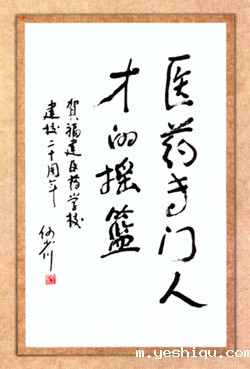 医药专门人
才的摇篮
賀福建医药学校
建校二十周年
何少川
m.yeshiqu.com